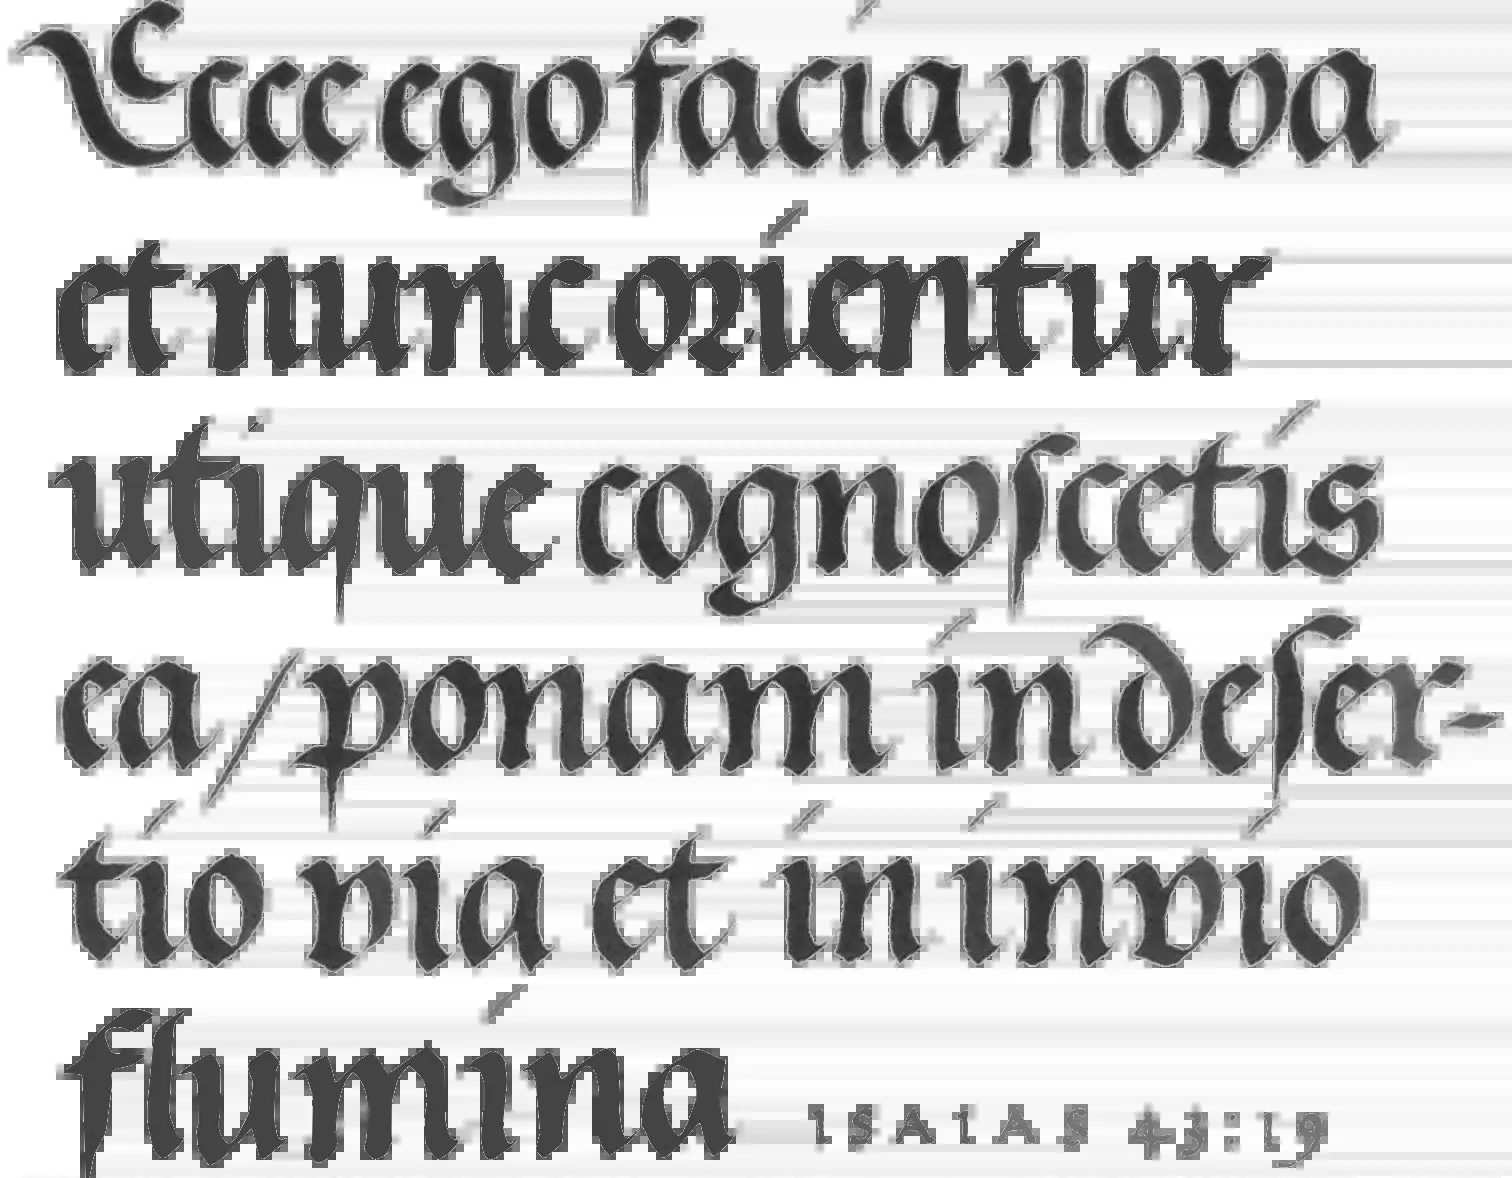 Ecce ego facia nova
et nunc orientur
utique cognoſcetis
ea / ponam in deſer-
tio via et in invio
flumina ISAIAS 43:19